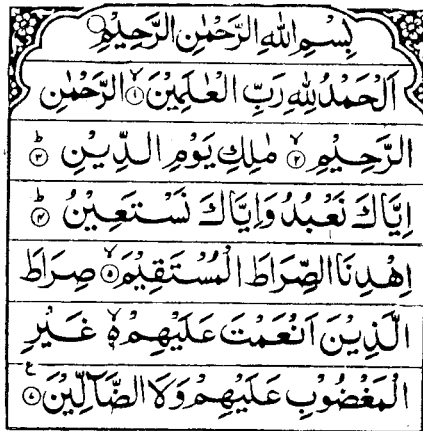 بِسْمِ اللهِ الرَّحْمٰنِ الرَّحِيْمِ
اَلْحَمْدُ لِلهِ رَبِّ الْعٰلَمِيْنَ ۙ﴿۱﴾ الرَّحْمٰنِ
الرَّحِيْمِ ۙ﴿۲﴾ مٰلِكِ يَوْمِ الدِّيْنِ ؕ﴿۳﴾
اِيَّاكَ نَعْبُدُ وَاِيَّاكَ نَسْتَعِيْنُ ؕ﴿۴﴾
اِهْدِنَا الصِّرَاطَ الْمُسْتَقِيْمَ ۙ﴿۵﴾ صِرَاطَ
الَّذِيْنَ اَنْعَمْتَ عَلَيْهِمْ ۙ۬ غَيْرِ
الْمَغْضُوْبِ عَلَيْهِمْ وَلَا الضَّآلِّيْنَ ﴿۷﴾ ع